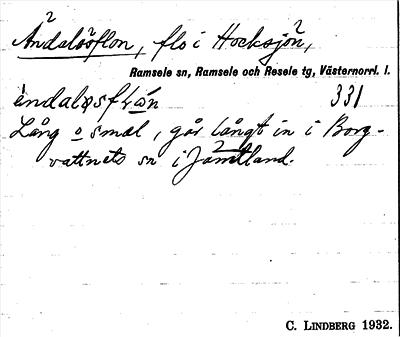 Ändalsöflon, flo i Hocksjön,
Ramsele sn, Ramsele och Resele tg, Västernorrl. l.
331
Lång o smal, går långt in i Borg-
vattnets sn i Jämtland.
C. LINDBERG 1932.